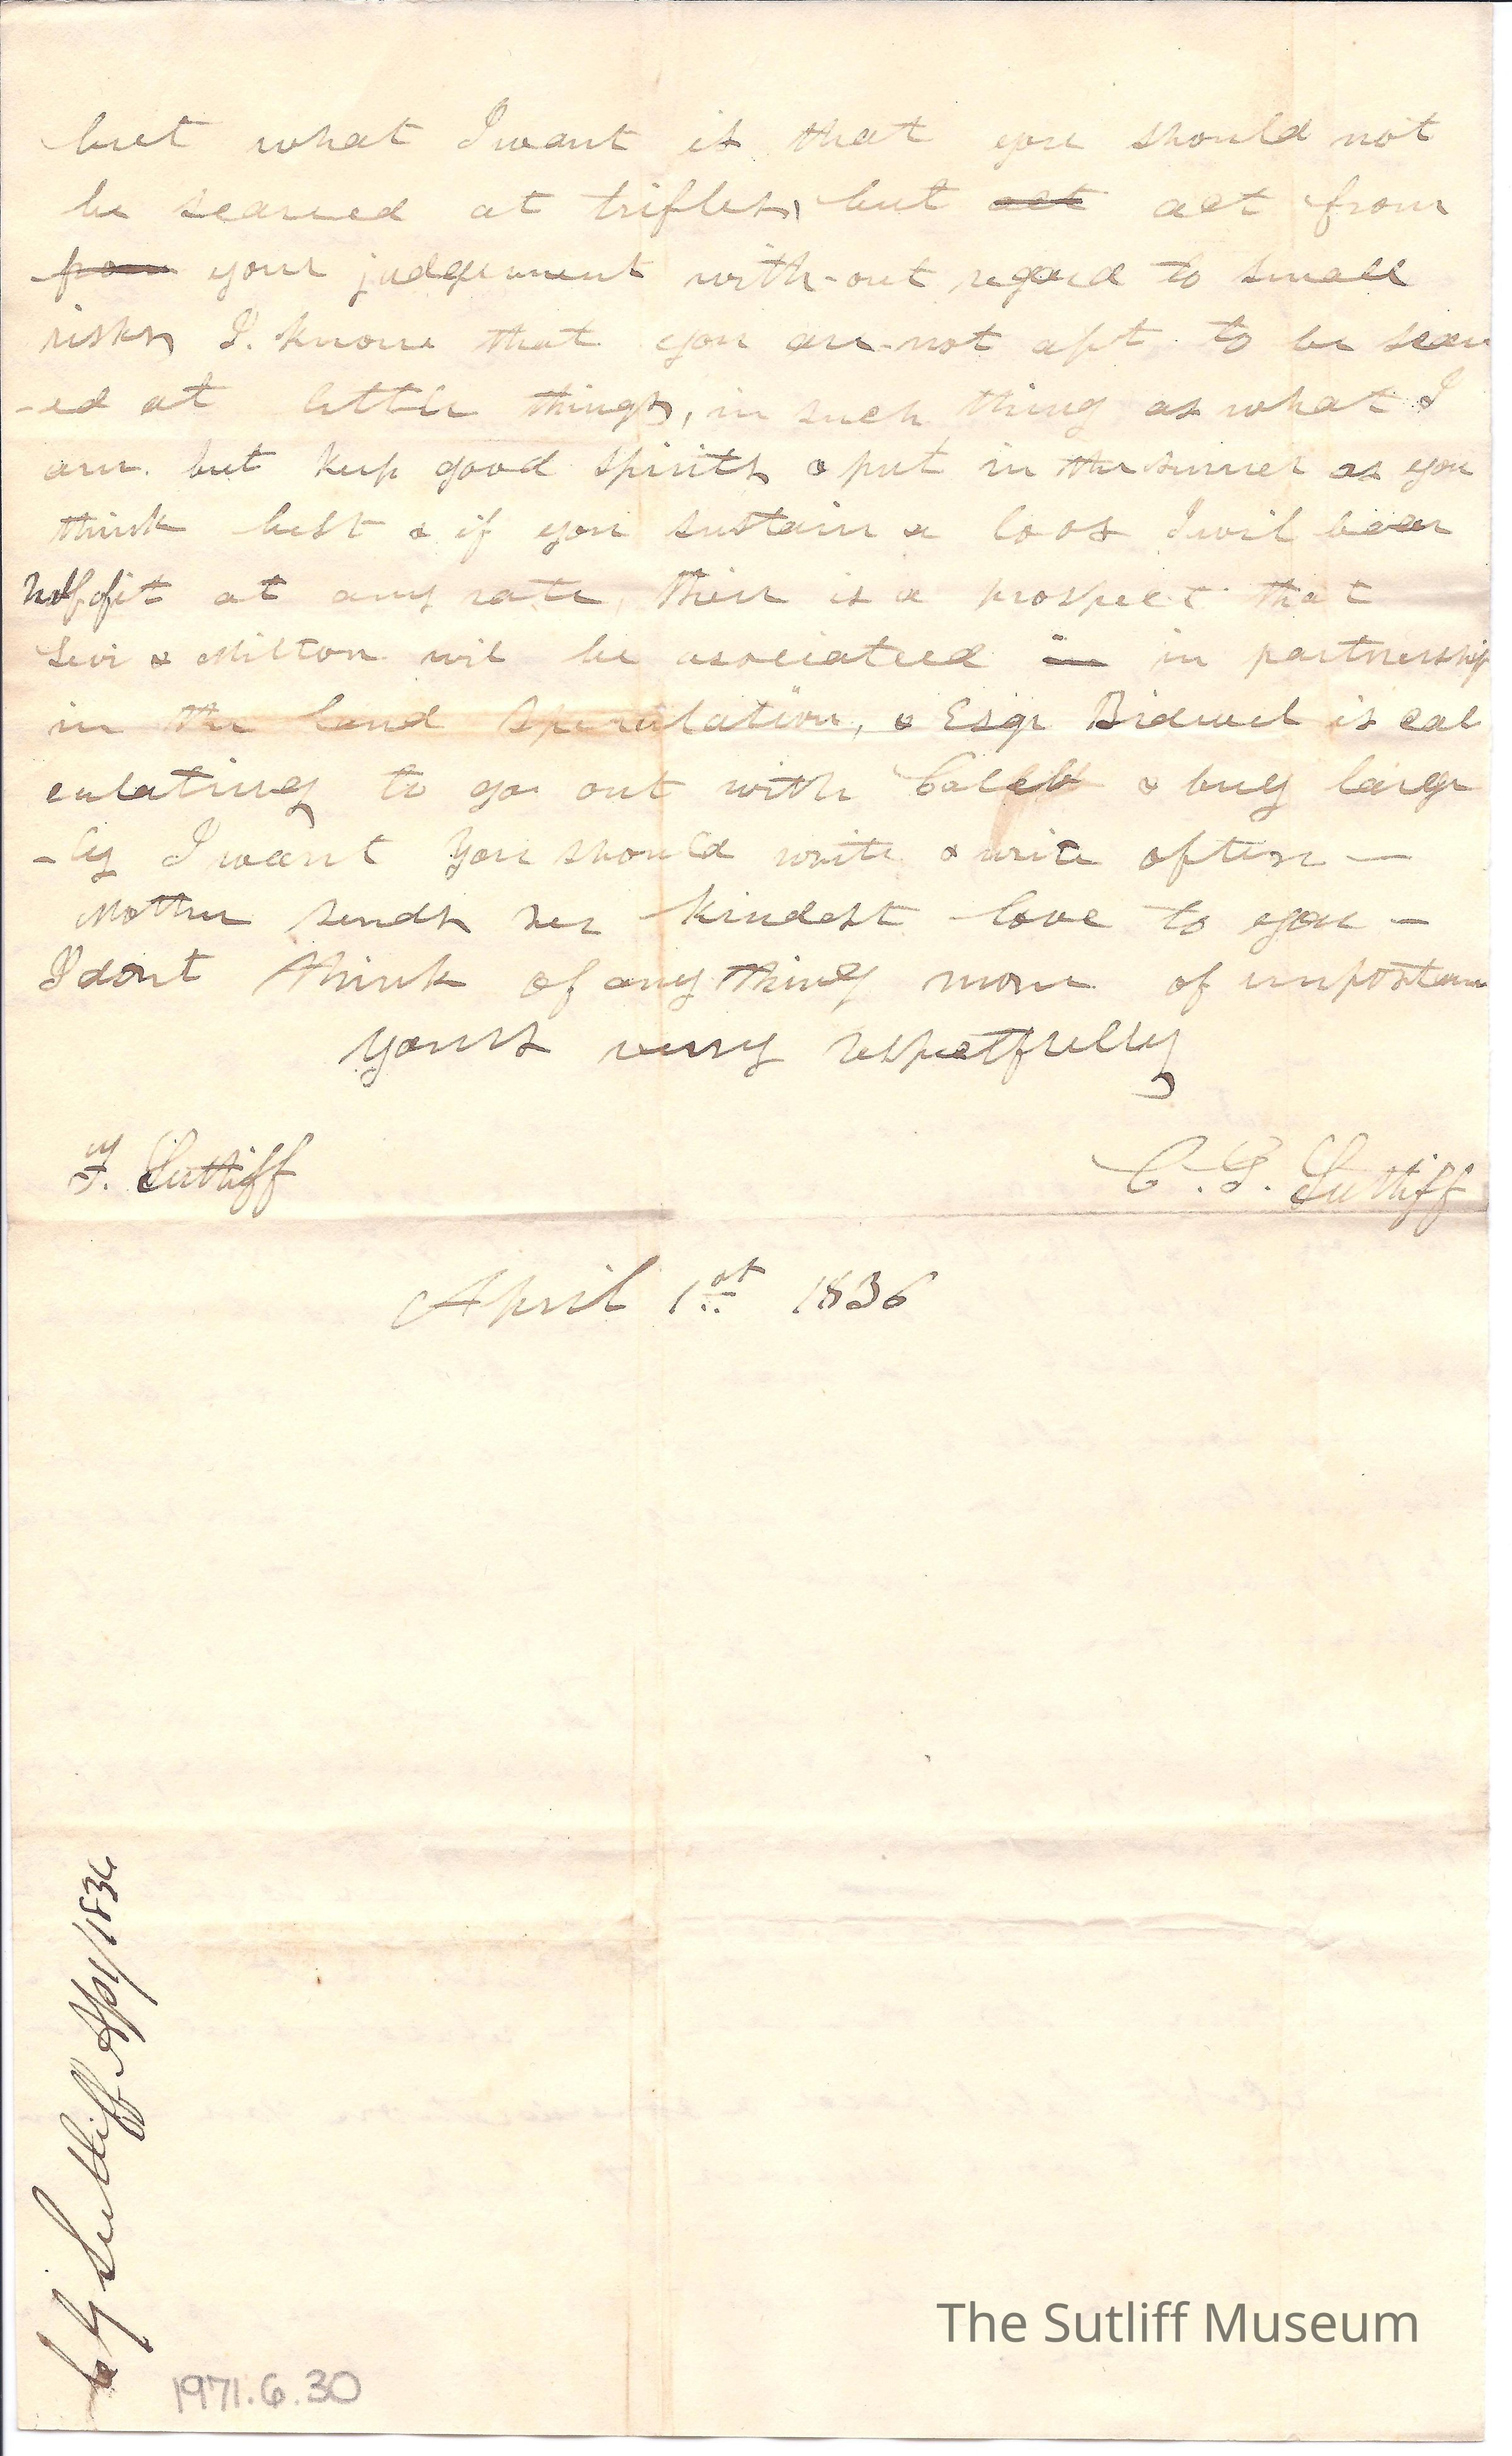 but what I want is that you should not
be scarred at trifles, but act act from
from your judgement with-out regard to small
risks I. know that you are not apt to be scar
-ed at little things, in such thing as what I
am. but keep good spirits & put in the sumer as you
think best & if you sustain a loos I wil bear
half of it at any rate, their is a prospect that
Levi & Milton wil be asociateed in in partnership
in the land speculation, & Esqr Bidwel is cal
culating to go out with Caleb & buy large
-ly I want you should write & write often —
Mother sends her kindest love to you —
I dont think of any thing more of importan
yours very respectfully
F. Sutliff
C. G. Sutliff
April 1st 1836
C G Sutliff Apl 1/1836
1971.6.30
The Sutliff Museum